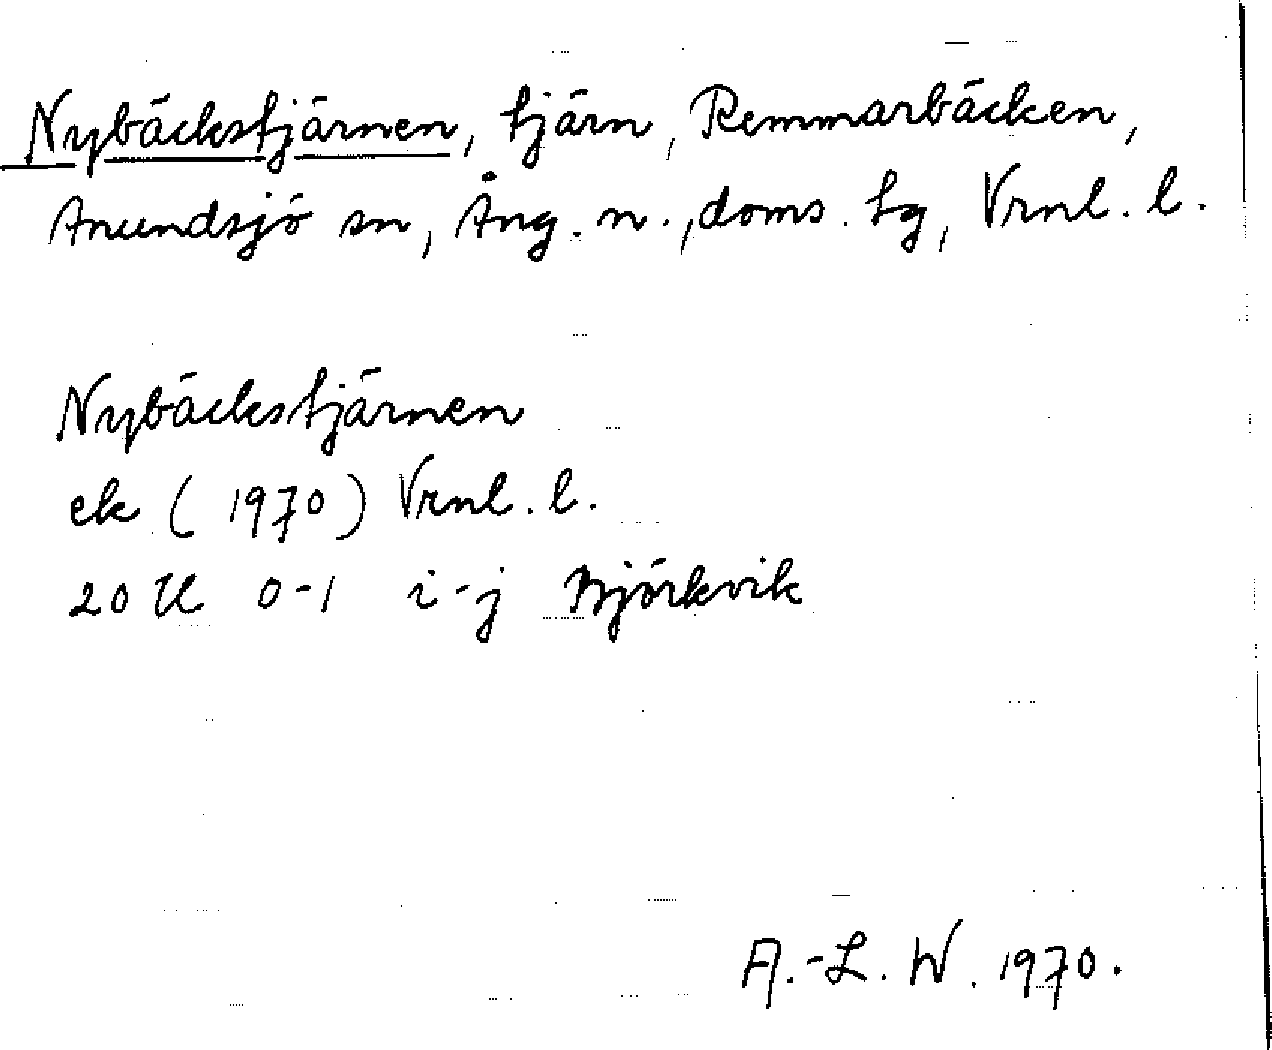 Nybäckstjärnen, tjärn, Remmarbäcken,
Anundsjö sn, Ång. n., doms. tg, Vrnl. l.
Nybäckstjärnen
ek (1970) Vrnl. l.
20 H 0-1 i-j Björkvik
A.-L. W. 1970.